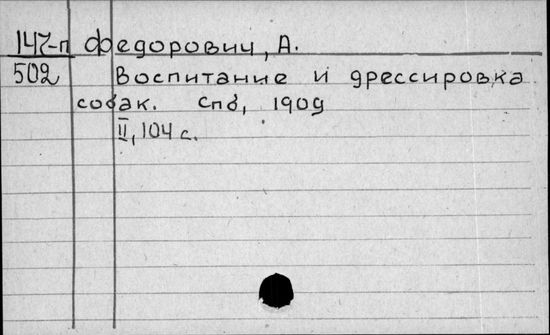 147-п Федорович, А.
502 Воспитание и дрессировка
собак. Спб, 1909
II, 104 с.